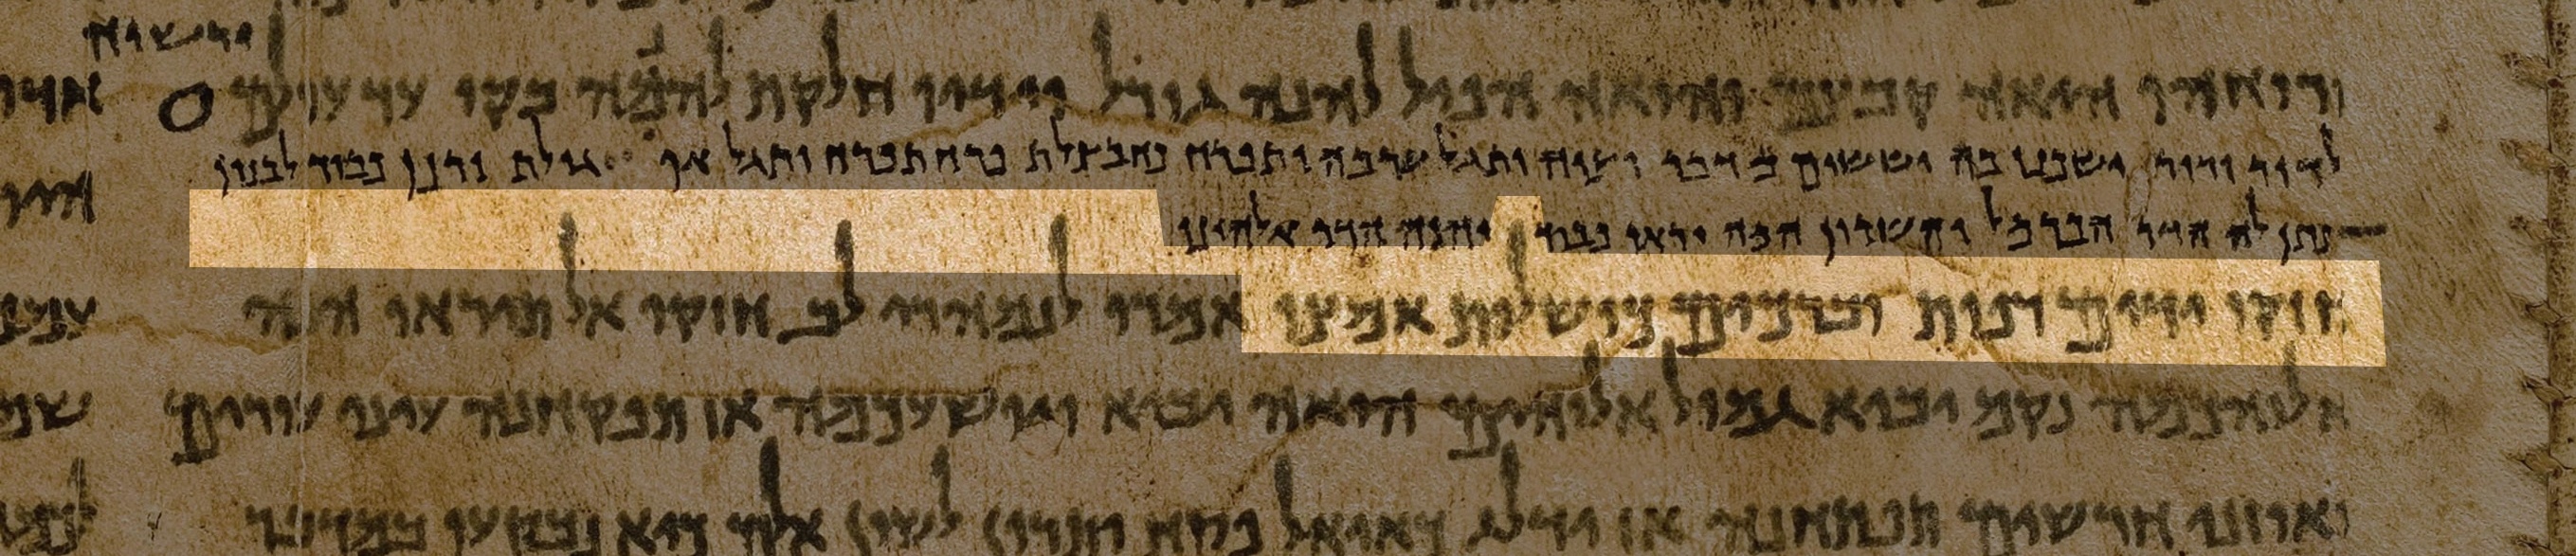 יירשוה
ורוחהו היאה קבצם והואה הפיל להנה גורל וידיו חלקת להמה בקו עד עולם
לדור ודור ישכנו בה יששום מדבר וציה ותגל ערבה ותפרח כחבצלת פרח תפרח ותגל אף גילת ורנן כבוד לבנון
נתן לה הדר הכרמל והשרון המה יראו כבוד יהוה הדר אלוהינו
חזקו ידים רפות וברכים כושלות אמצו אמורו לנמהרי לב חזקו אל תיראו הנה
אלוהיכמה נקם יבוא גמול אלוהים הואה יבוא ויושעכמה אז תפקחנה עיני עורים
ואוזני חרשים תפתחנה אז ידלג כאיל פסח ותרון לשון אלם כיא נבקעו במדבר